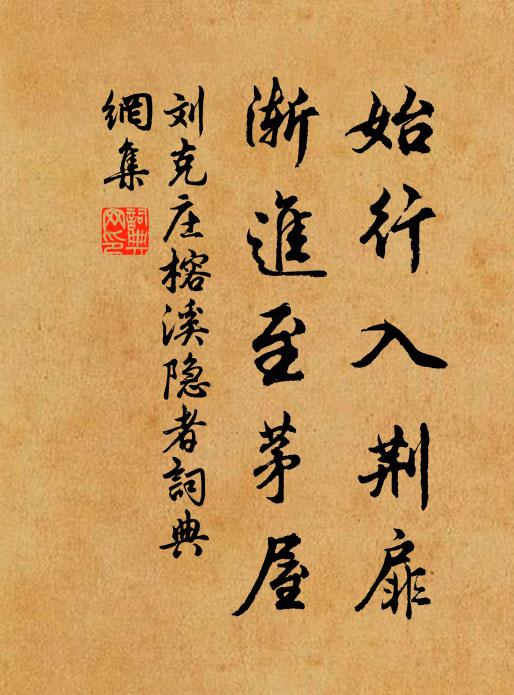 始行入荆扉
渐進至茅屋
刘克庄榕溪隐者詞典
網集
詞典
网印